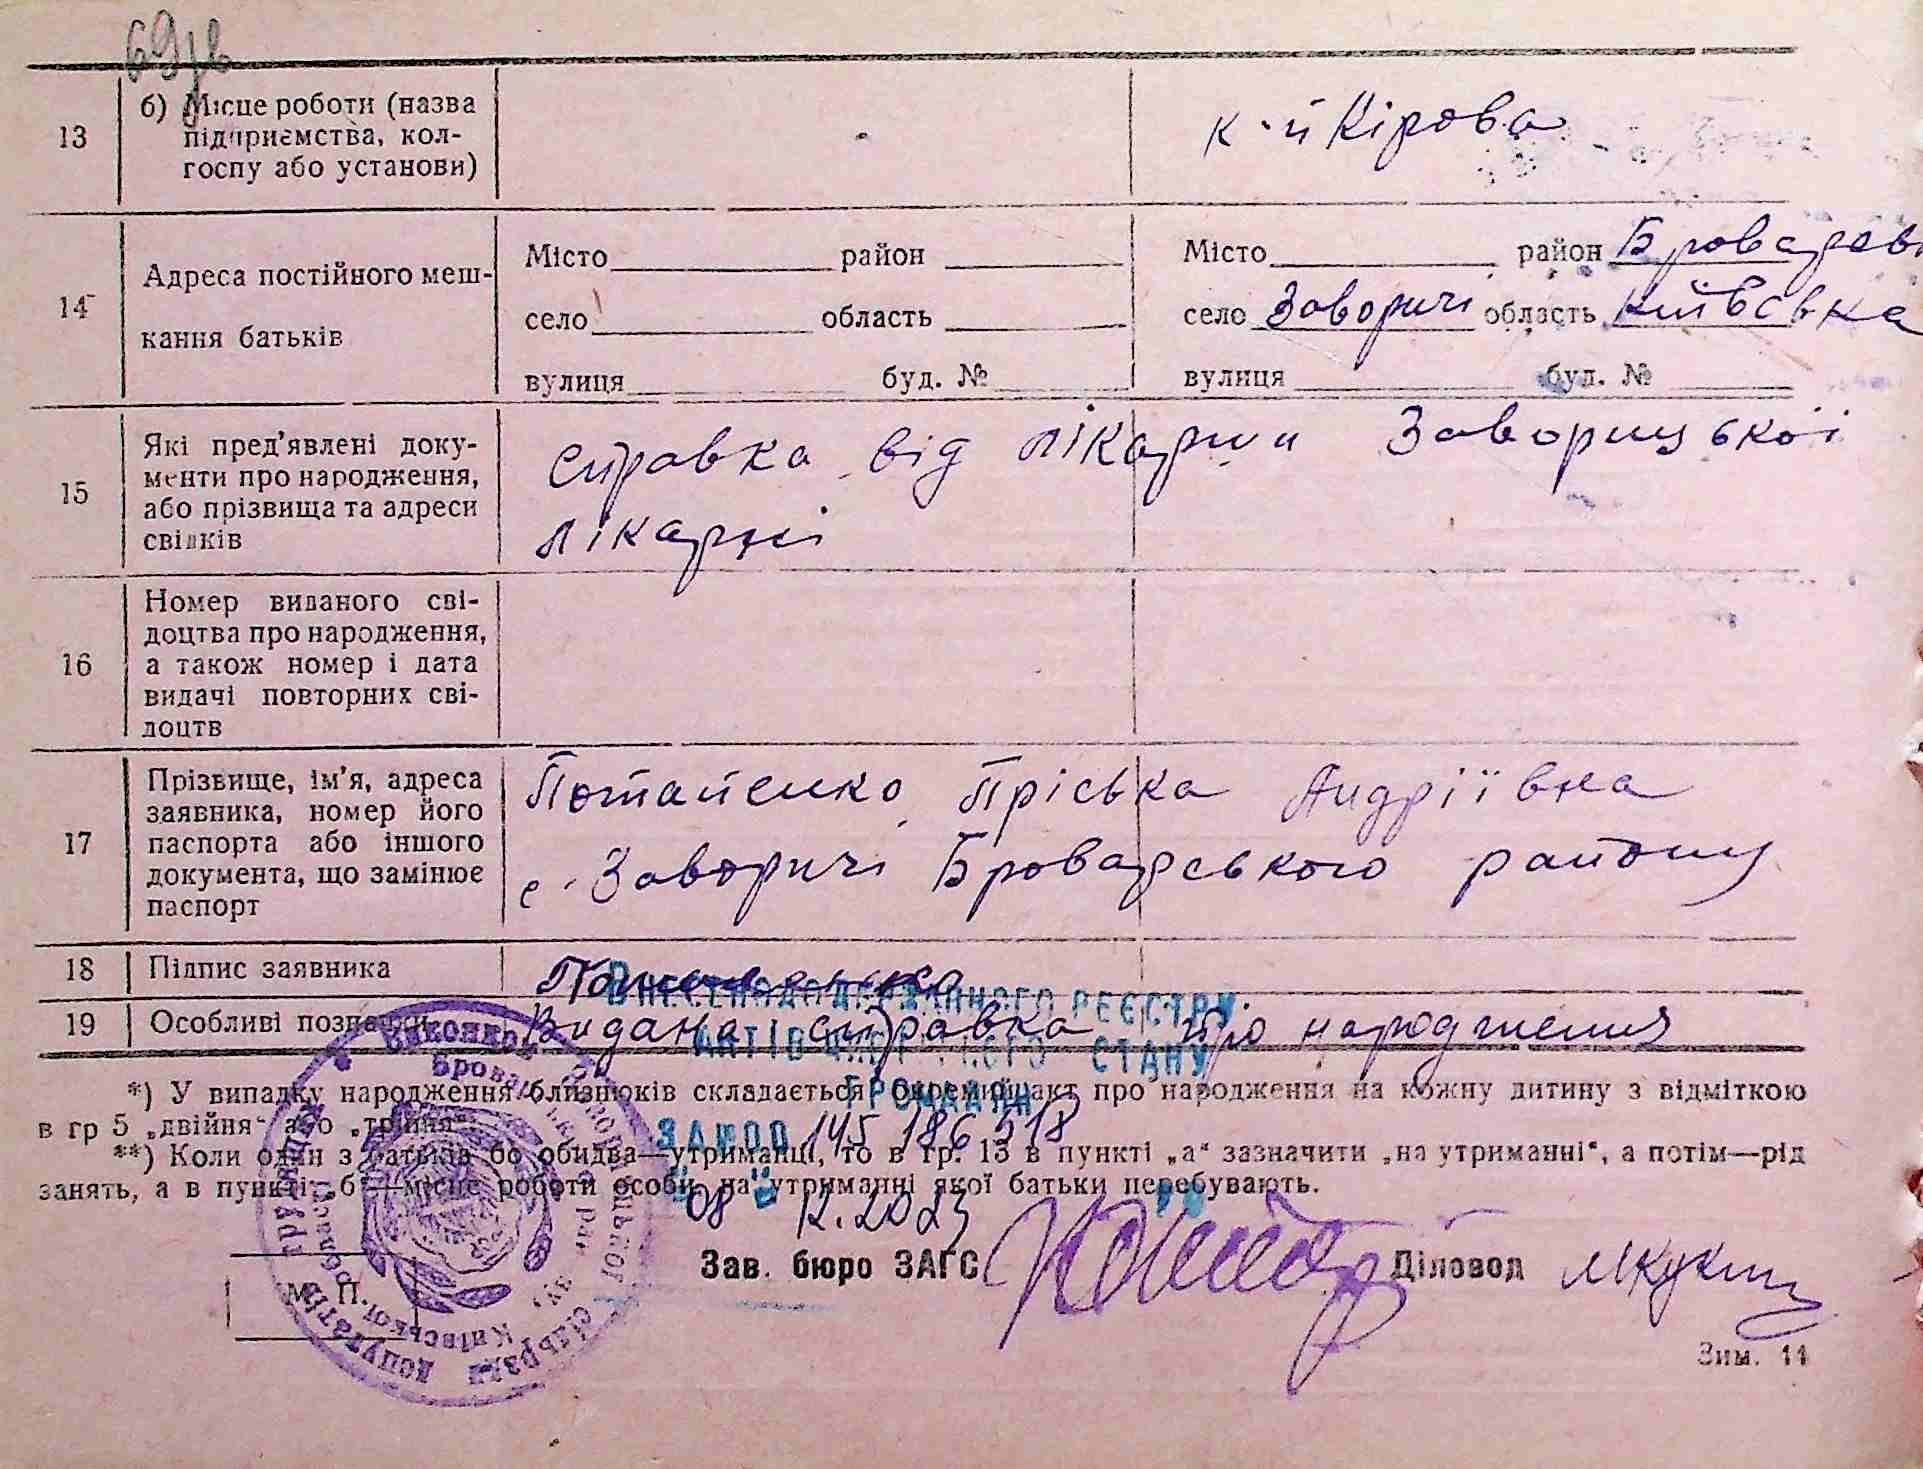 69зв
13 б) Місце роботи (назва
підприємства, кол-
госпу або установи)
к-п Кірова
14 Адреса постійного меш-
кання батьків
Місто район
село область
вулиця буд. №
Місто район Броварськ
село Заворичі область Київська
вулиця буд. №
15 Які пред'явлені доку-
менти про народження,
або прізвища та адреси
свідків
справка від лікарни Заворицької
лікарні
16 Номер виданого сві-
доцтва про народження,
а також номер і дата
видачі повторних сві-
доцтв
17 Прізвище, ім'я, адреса
заявника, номер його
паспорта або іншого
документа, що замінює
паспорт
Потапенко Пріська Андріївна
с. Заворичі Броварського району
18 Підпис заявника
19 Особливі позначки Видана справка про народження
ВНЕСЕНО ДО ДЕРЖАВНОГО РЕЄСТРУ
АКТІВ ЦИВІЛЬНОГО СТАНУ
ГРОМАДЯН
*) У випадку народження близнюків складається окремий акт про народження на кожну дитину з відміткою
в гр 5 „двійня“ або „трійня“.
145 186 518
**) Коли один з батьків або обидва—утриманці, то в гр. 13 в пункті „а“ зазначити „на утриманні“, а потім—рід
занять, а в пункті „б“—місце роботи особи, на утриманні якої батьки перебувають.
08 12.2023
Зав. бюро ЗАГС Діловод
М. П.
Виконком Заворицької сільради депутатів трудящих
Броварського р-ну, Київської області
Зим. 11